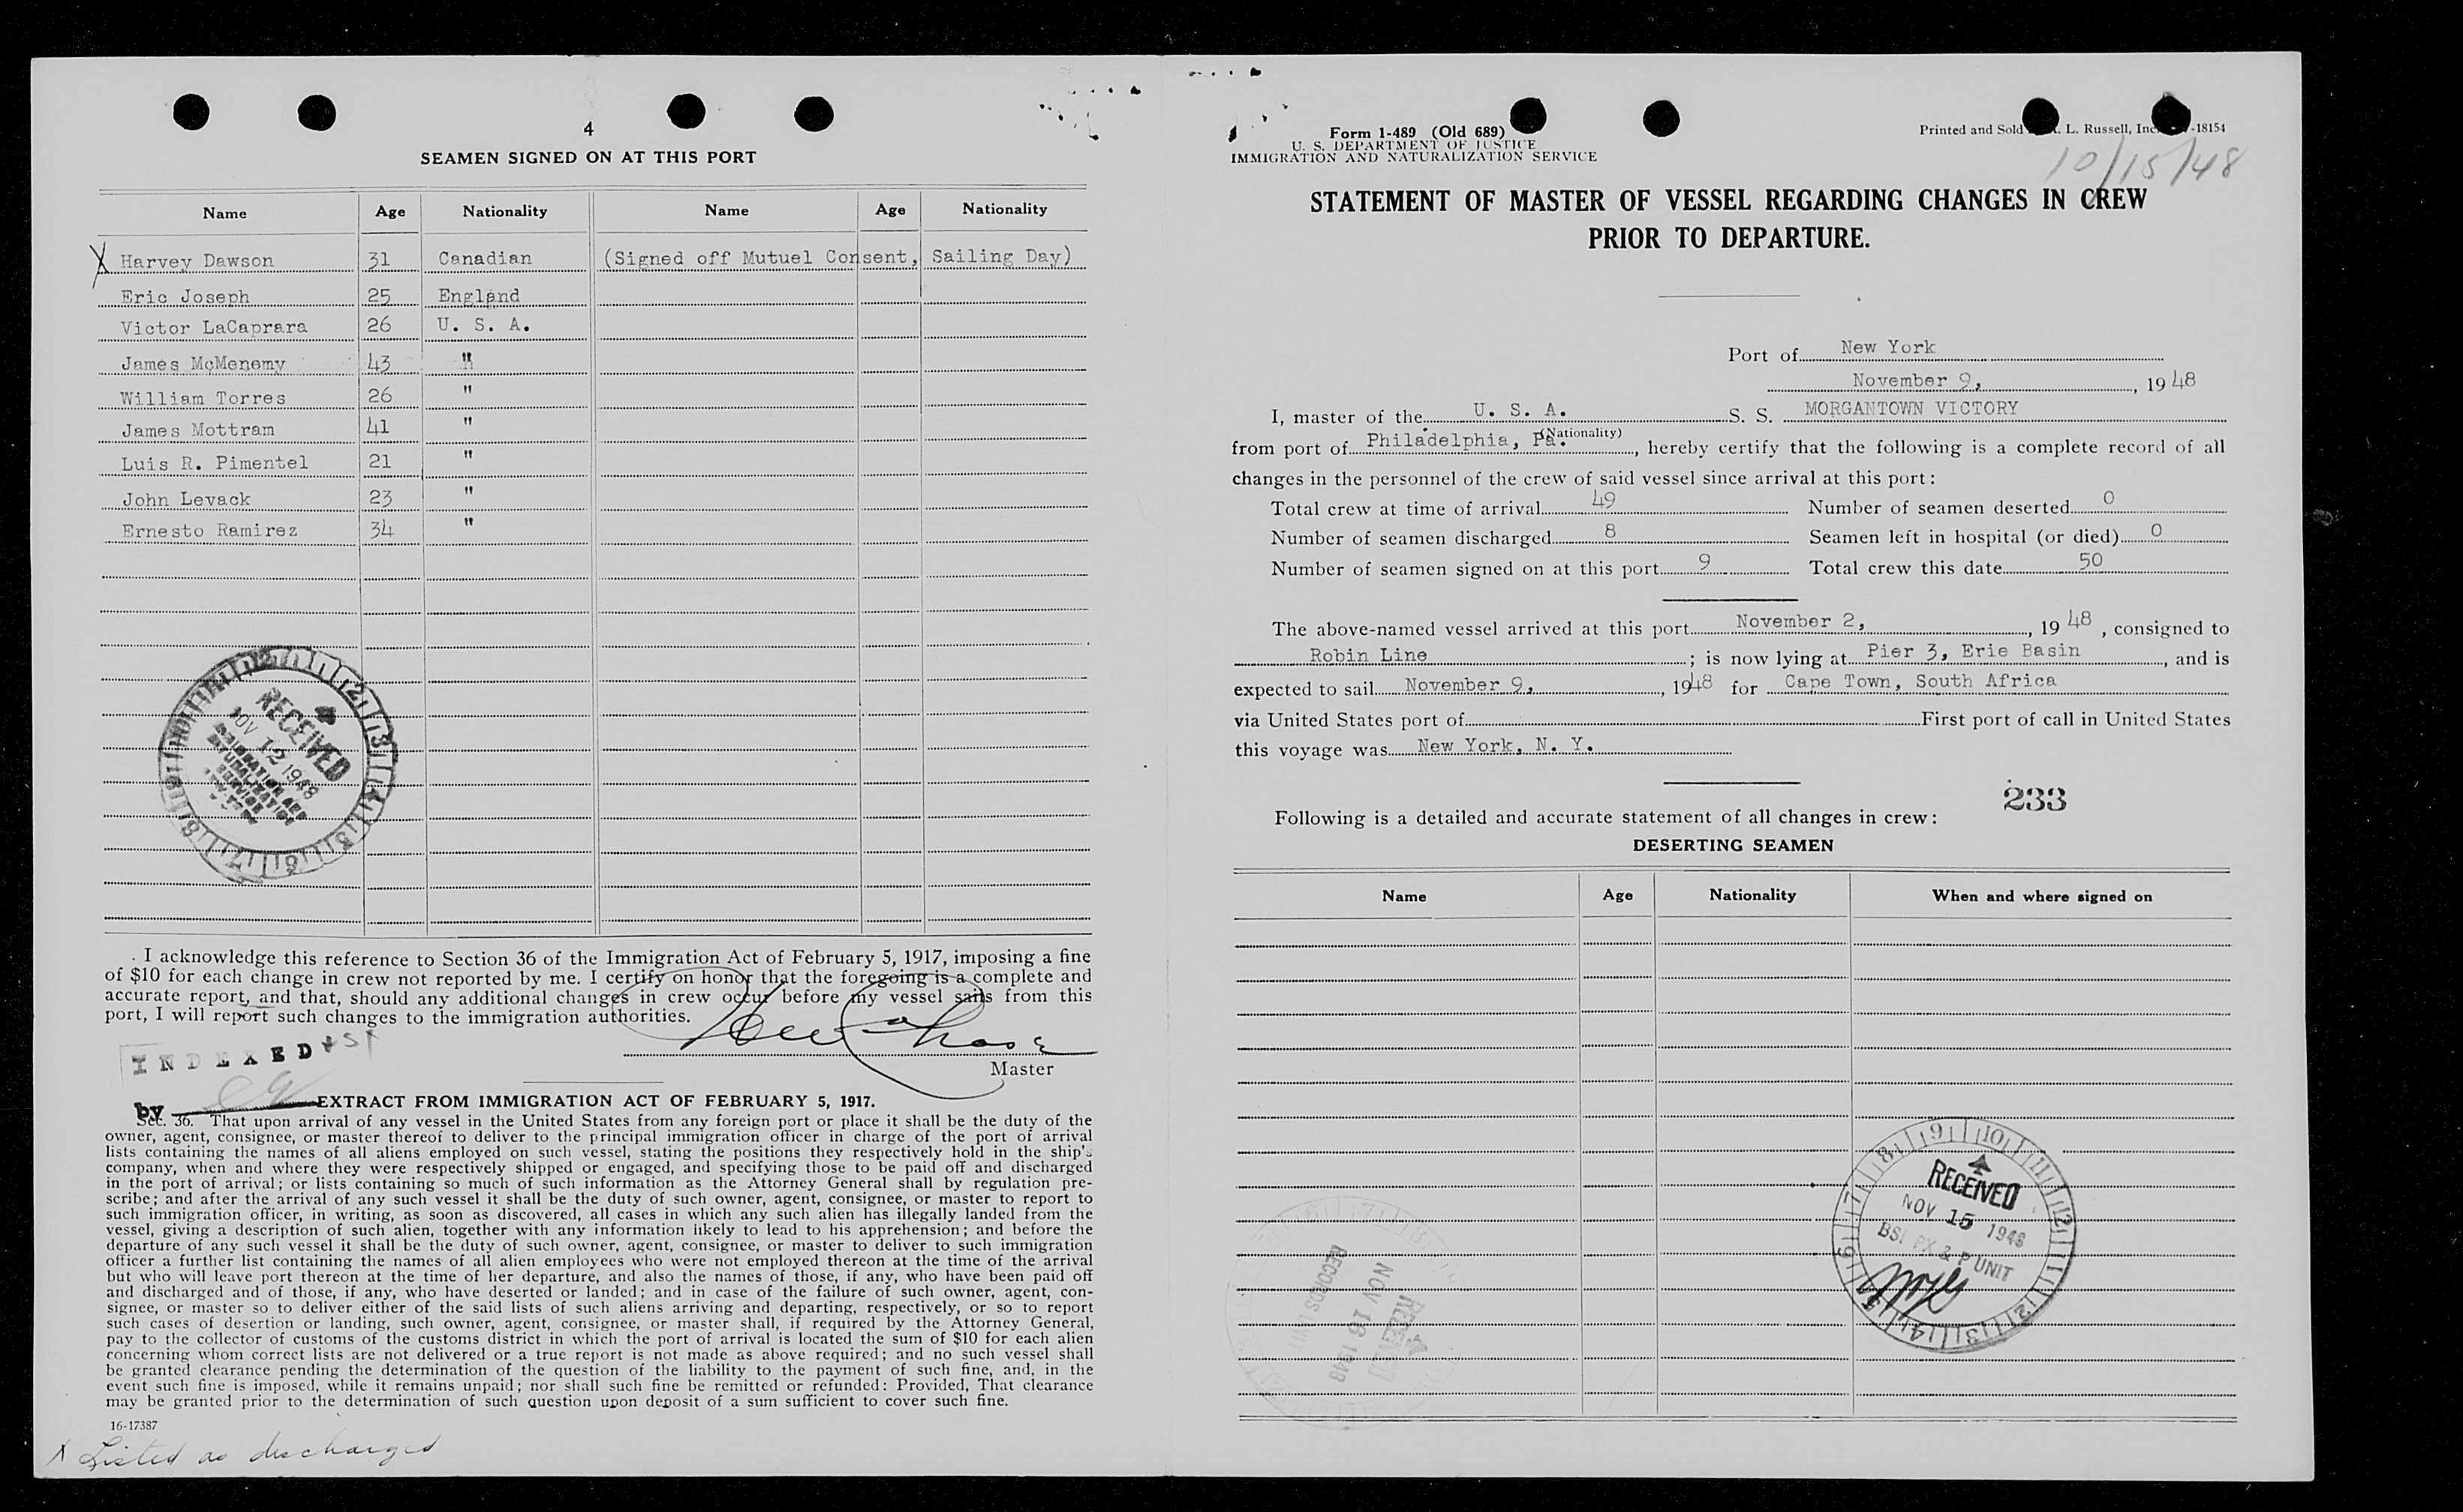 4
SEAMEN SIGNED ON AT THIS PORT
Name Age Nationality Name Age Nationality
X Harvey Dawson 31 Canadian (Signed off Mutuel Consent, Sailing Day)
Eric Joseph 25 England
Victor LaCaprara 26 U. S. A.
James McMenemy 43 "
William Torres 26 "
James Mottram 41 "
Luis R. Pimentel 21 "
John Levack 23 "
Ernesto Ramirez 34 "
RECEIVED
NOV 12 1948
IMMIGRATION AND
NATURALIZATION
SERVICE
I acknowledge this reference to Section 36 of the Immigration Act of February 5, 1917, imposing a fine
of $10 for each change in crew not reported by me. I certify on honor that the foregoing is a complete and
accurate report, and that, should any additional changes in crew occur before my vessel sails from this
port, I will report such changes to the immigration authorities.
INDEXED
Master
by
EXTRACT FROM IMMIGRATION ACT OF FEBRUARY 5, 1917.
Sec. 36. That upon arrival of any vessel in the United States from any foreign port or place it shall be the duty of the
owner, agent, consignee, or master thereof to deliver to the principal immigration officer in charge of the port of arrival
lists containing the names of all aliens employed on such vessel, stating the positions they respectively hold in the ship's
company, when and where they were respectively shipped or engaged, and specifying those to be paid off and discharged
in the port of arrival; or lists containing so much of such information as the Attorney General shall by regulation pre-
scribe; and after the arrival of any such vessel it shall be the duty of such owner, agent, consignee, or master to report to
such immigration officer, in writing, as soon as discovered, all cases in which any such alien has illegally landed from the
vessel, giving a description of such alien, together with any information likely to lead to his apprehension; and before the
departure of any such vessel it shall be the duty of such owner, agent, consignee, or master to deliver to such immigration
officer a further list containing the names of all alien employees who were not employed thereon at the time of the arrival
but who will leave port thereon at the time of her departure, and also the names of those, if any, who have been paid off
and discharged and of those, if any, who have deserted or landed; and in case of the failure of such owner, agent, con-
signee, or master so to deliver either of the said lists of such aliens arriving and departing, respectively, or so to report
such cases of desertion or landing, such owner, agent, consignee, or master shall, if required by the Attorney General,
pay to the collector of customs of the customs district in which the port of arrival is located the sum of $10 for each alien
concerning whom correct lists are not delivered or a true report is not made as above required; and no such vessel shall
be granted clearance pending the determination of the question of the liability to the payment of such fine, and, in the
event such fine is imposed, while it remains unpaid; nor shall such fine be remitted or refunded: Provided, That clearance
may be granted prior to the determination of such question upon deposit of a sum sufficient to cover such fine.
16-17387
X Listed as discharged
Form I-489 (Old 689)
U. S. DEPARTMENT OF JUSTICE
IMMIGRATION AND NATURALIZATION SERVICE
Printed and Sold L. Russell, Inc. -18154
10/15/48
STATEMENT OF MASTER OF VESSEL REGARDING CHANGES IN CREW
PRIOR TO DEPARTURE.
Port of New York
November 9, 1948
I, master of the U. S. A. S. S. MORGANTOWN VICTORY
(Nationality)
from port of Philadelphia, Pa. , hereby certify that the following is a complete record of all
changes in the personnel of the crew of said vessel since arrival at this port:
Total crew at time of arrival 49 Number of seamen deserted 0
Number of seamen discharged 8 Seamen left in hospital (or died) 0
Number of seamen signed on at this port 9 Total crew this date 50
The above-named vessel arrived at this port November 2, , 1948 , consigned to
Robin Line ; is now lying at Pier 3, Erie Basin , and is
expected to sail November 9, , 1948 for Cape Town, South Africa
via United States port of First port of call in United States
this voyage was New York, N. Y.
233
Following is a detailed and accurate statement of all changes in crew:
DESERTING SEAMEN
Name Age Nationality When and where signed on
RECEIVED
NOV 15 1948
BSI PX & P UNIT
RECEIVED
NOV 16 1948
RECORDS UNIT